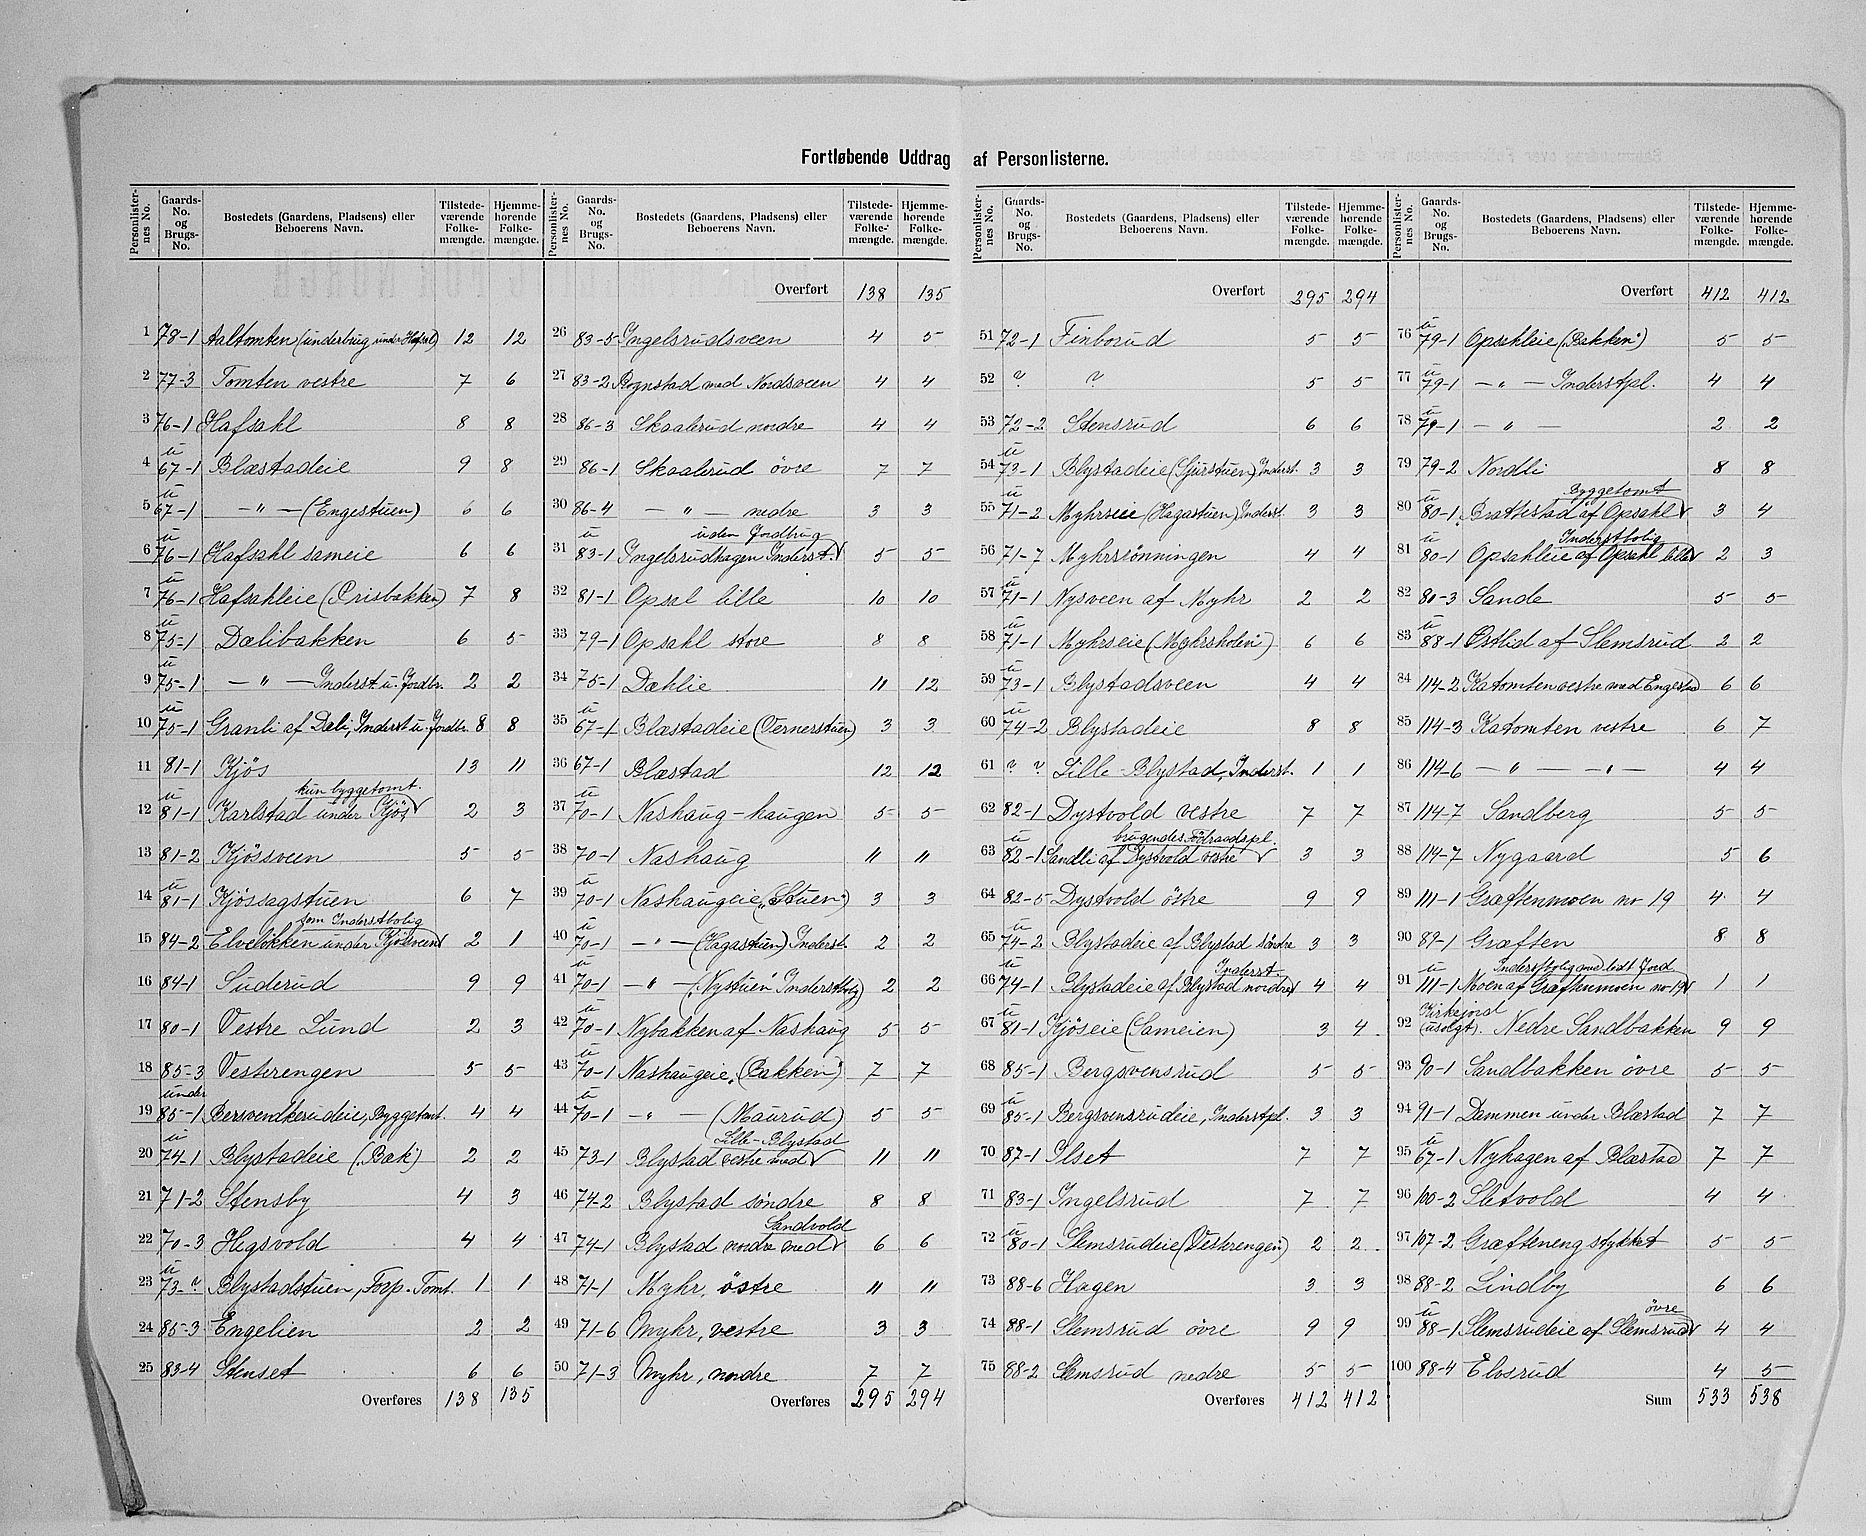 Fortløbende Uddrag af Personlisterne.
Personlister-nes No. | Gaards-No. og Brugs-No. | Bostedets (Gaardens, Pladsens) eller Beboerens Navn. | Tilstede-værende Folke-mængde. | Hjemme-hørende Folke-mængde.
Overført 138 135
Overført 295 294
Overført 412 412
1 78-1 Aaltomten (underbrug under Hafsal) 12 12
2 77-3 Tomten vestre 7 6
3 76-1 Hafsahl 8 8
4 u 67-1 Blæstadeie 9 8
5 u 67-1 —"— (Engestuen) 6 6
6 u 76-1 Hafsahl sameie 6 6
7 u 76-1 Hafsahleie (Prisbakken) 7 8
8 u 75-1 Dælibakken 6 5
9 u 75-1 —"— Inderst. u. Jordbr. 2 2
10 u 75-1 Granli af Dæli, Inderst u. Jordbr. 8 8
11 81-1 Kjös 13 11
12 u 81-1 Karlstad under Kjös kun byggetomt. 2 3
13 81-2 Kjössveen 5 5
14 u 81-1 Kjössagstuen 6 7
15 84-2 Elveløkken under Kjösveen som Inderstbolig 2 1
16 84-1 Suderud 9 9
17 80-1 Vestre Lund 2 3
18 85-3 Vesterengen 5 5
19 under 85-1 Bersvendkerudeie, Byggetomt. 4 4
20 u 74-1 Blystadeie ("Bæk") 2 2
21 71-2 Stensby 4 3
22 70-3 Hegsvold 4 4
23 u 73-? Blystadstuen, Torp-Tomt. 1 1
24 85-3 Engelien 2 2
25 83-4 Stenset 6 6
Overføres 138 135
26 83-5 Ingelsrudsveen 4 5
27 83-2 Rognstad med Nordsveen 4 4
28 86-3 Skaalerud nordre 4 4
29 86-1 Skaalerud övre 7 7
30 86-4 —"— nedre 3 3
31 u 83-1 Ingelsrudhagen Inderst. uden Jordbrug 5 5
32 81-1 Opsal lille 10 10
33 79-1 Opsahl store 8 8
34 75-1 Dæhlie 11 12
35 u 67-1 Blæstadeie (Vernerstuen) 3 3
36 67-1 Blæstad 12 12
37 u 70-1 Nashaug-haugen 5 5
38 70-1 Nashaug 11 11
39 u 70-1 Nashaugeie ("Stuen") 3 3
40 u 70-1 —"— (Hagastuen) Inderst. 2 2
41 u 70-1 —"— ("Nystuen" Inderstbolig) 2 2
42 u 70-1 Nybakken af Nashaug 5 5
43 u 70-1 Nashaugeie, (Bakken") 7 7
44 u 70-1 —"— (Maurud) 5 5
45 73-1 Blystad vestre med Lille-Blystad 11 11
46 74-2 Blystad söndre 8 8
47 74-1 Blystad nordre med Sandvold 6 6
48 71-1 Myhr, östre 11 11
49 71-6 Myhr, vestre 3 3
50 71-3 Myhr, nordre 7 7
Overføres 295 294
51 72-1 Finborud 5 5
52 ? ? 5 5
53 72-2 Stensrud 6 6
54 u 73-1 Blystadeie (Sjurstuen) Inderst. 3 3
55 u 71-2 Myhrseie (Hagastuen) Inderst. 3 3
56 71-7 Myhrsrönningen 4 4
57 u 71-1 Nysveen af Myhr 2 2
58 u 71-1 Myhrseie ("Myhrsholen") 6 6
59 u 73-1 Blystadsveen 4 4
60 u 74-2 Blystadeie 8 8
61 ? ? Lille-Blystad, Inderst. 1 1
62 82-1 Dystvold vestre 7 7
63 u 82-1 Sandli af Dystvold vestre 3 3
64 82-5 Dystvold östre 9 9
65 u 74-2 Blystadeie af Blystad söndre 3 3
66 u 74-1 Blystadeie af Blystad nordre Inderst. 4 4
67 u 81-1 Kjöseie (Sameien) 3 4
68 85-1 Bergsvensrud 5 5
69 u 85-1 Bergsvensrudeie, Inderstpl. 3 3
70 87-1 Ilset 7 7
71 83-1 Ingelsrud 7 7
72 u 80-1 Slemsrudeie (Vesterengen) 2 2
73 88-6 Hagen 3 3
74 88-1 Slemsrud övre 9 9
75 88-2 Slemsrud nedre 5 5
Overføres 412 412
76 u 79-1 Opsahleie ("Bakken") 5 5
77 u 79-1 —"— Inderstpl. 4 4
78 u 79-1 —"— 2 2
79 79-2 Nordli 8 8
80 u 80-1 Brattestad af Opsahl Byggetomt 3 4
81 u 80-1 Opsahleie af Opsahl lille Inderstbolig 2 3
82 80-3 Sande 5 5
83 u 88-1 Østlid af Slemsrud 2 2
84 114-2 Katomten vestre med Engestad 6 6
85 114-3 Katomten vestre 6 7
86 114-6 —"— —"— 4 4
87 114-7 Sandberg 5 5
88 114-7 Nygaard 5 6
89 111-1 Græftenmoen no 19 4 4
90 89-1 Græften 8 8
91 u 111-1 Moen af Græftenmoen no 19 Inderstbolig med lidt Jord 1 1
92 Kirkejord (usolgt). Nedre Sandbakken 9 9
93 90-1 Sandbakken övre 5 5
94 91-1 Dammen under Blæstad 7 7
95 u 67-1 Nyhagen af Blæstad 7 7
96 100-2 Sletvold 4 4
97 107-2 Græftenengstykket 5 5
98 88-2 Lindby 6 6
99 u 88-1 Slemsrudeie af Slemsrud övre 4 4
100 88-4 Elvsrud 4 5
Sum 533 538